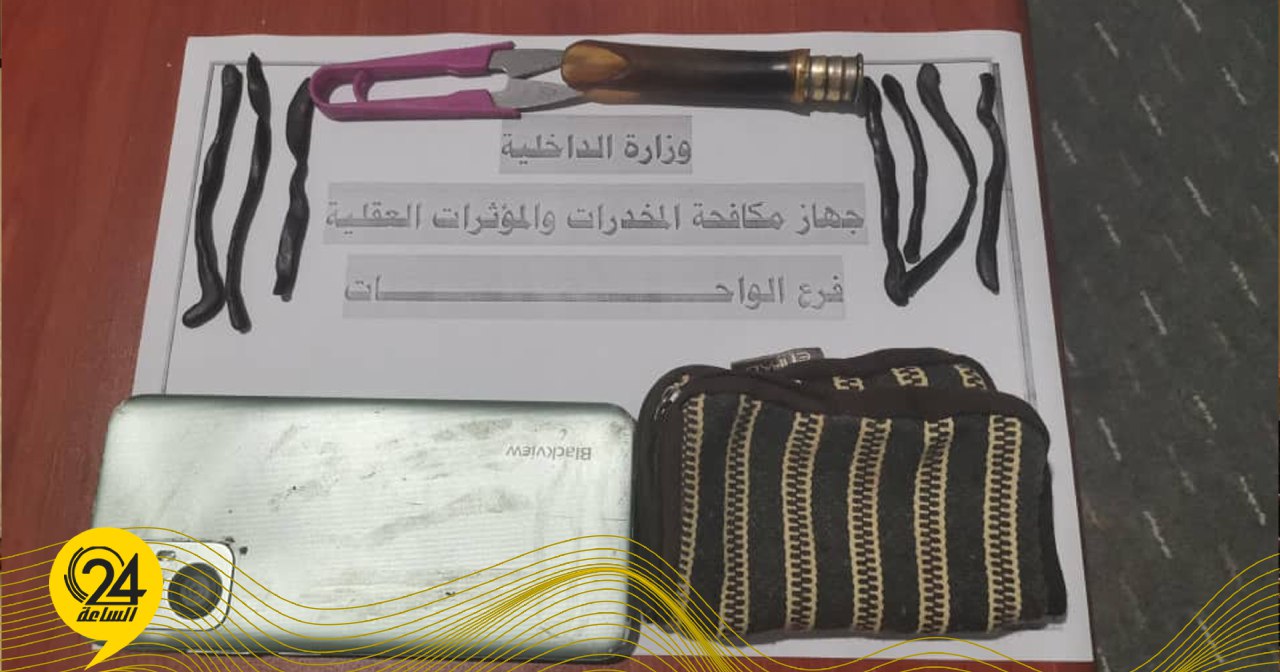 وزارة الداخلية
جهاز مكافحة المخدرات والمؤثرات العقلية
فرع الواحـــــــــــــــــــــات
Blackview
24
الساعة